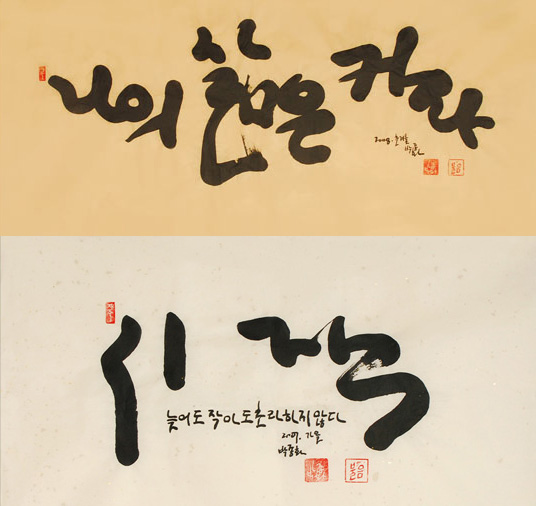 나의 삶은 커라
2008.
시작
늦어도 작아도 초라하지 않다
2007. 가을